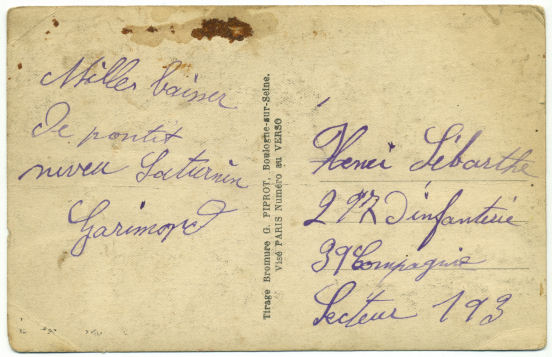 Miller baiser
De pontit
neveu Saturnin
Garimond
Tirage Bromure G. PIPROT, Boulogne-sur-Seine.
Visé PARIS Numéro au VERSO
Henri Lébarthe
297 d'infanterie
39 Compagnie
Secteur 193